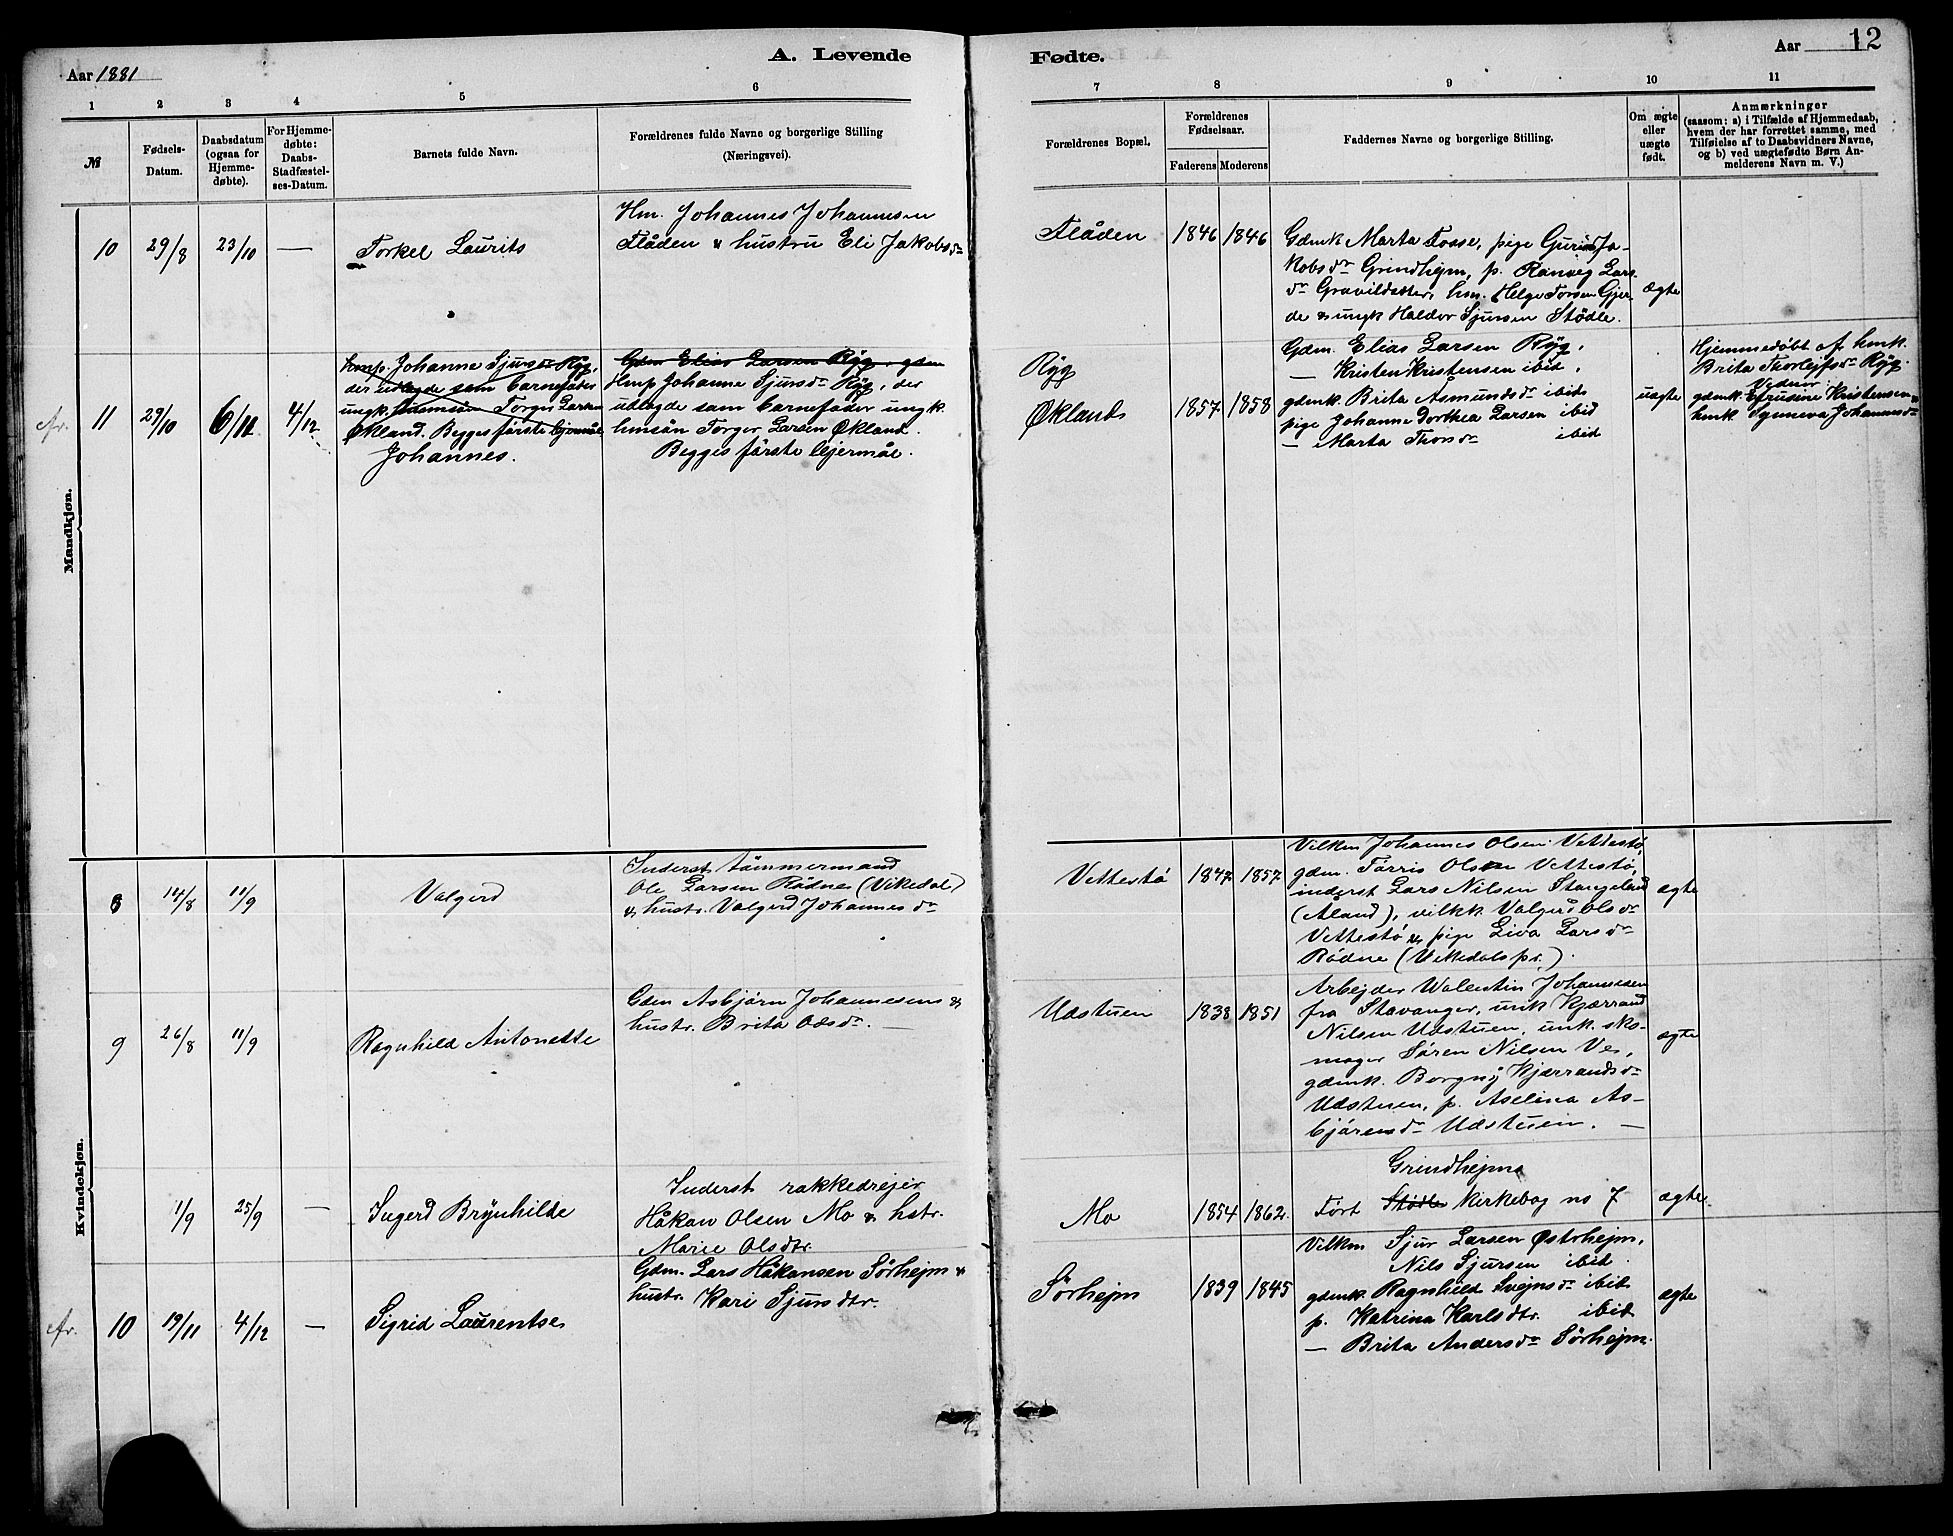 Aar 1881
A. Levende
Fødte.
Aar
12
1
2
3
4
5
6
7
8
9
10
11
№
Fødsels-
Datum.
Daabsdatum
(ogsaa for
Hjemme-
døbte).
For Hjemme-
døbte:
Daabs-
Stadfæstel-
ses-Datum.
Barnets fulde Navn.
Forældrenes fulde Navne og borgerlige Stilling
(Næringsvei).
Forældrenes Bopæl.
Forældrenes
Fødselsaar.
Faderens
Moderens
Faddernes Navne og borgerlige Stilling.
Om ægte
eller
uægte
født.
Anmærkninger
(saasom: a) i Tilfælde af Hjemmedaab,
hvem der har forrettet samme, med
Tilføielse af to Daabsvidners Navne,
og b) ved uægtefødte Børn An-
melderens Navn m. V.)
Mandkjøn.
10
29/8
23/10
—
Torkel Laurits
Hm. Johannes Johannesen
Flåden & hustru Eli Jakobsdr
Flåden
1846
1846
Gdmk Marta Tosse, pige Guri Ja-
kobsdr Grindhejm, p. Ranveg Lars-
dr Gravildsæter, hm. Helge Torsen Gjer-
de & ungk Haldor Sjursen Stødle.
ægte
11
29/10
6/11
4/12
Hmp. Johanne Sjursdr Ryg,
der udlagde som barnefader
ungk. husmsøn Torger Larsen
Økland. Begges første lejermål
Johannes.
Gdm Elias Larsen Ryg, gdm
Hmp Johanne Sjursdr Ryg, der
udlagde som barnefader ungk.
hmsøn Torger Larsen Økland.
Begges første lejermål.
Ryg
Økland
1857
1858
Gdm. Elias Larsen Ryg,
— Kristen Kristensen ibid,
gdmk. Brita Asmundsdr ibid
pige Johanne Dorthea Larsen ibid
— Marta Thorsdr ibid
uægte
Hjemmedøbt af hmk.
Brita Thorlejfsdr Ryg.
Vidner
gdmk. Efrusine Kristensen &
hmk. Syneva Johannsdr
Kvindekjøn.
8
14/8
11/9
Valgerd
Inderst tømmermand
Ole Larsen Rødne (Vikedal)
& hustr. Valgerd Johannesdr
Vettestø
1847
1857
Vilkm Johannes Olsen Vettestø,
gdm. Tørris Olsen Vettestø,
inderst Lars Nilsen Stangeland
(Åland), vilkk. Valgerd Olsdr
Vettestø & pige Liva Larsdr
Rødne (Vikedals pr.).
ægte
9
26/8
11/9
Ragnhild Antonette
Gdm Asbjørn Johannesens &
hustr. Brita Odsdr. —
Udstuen
1838
1851
Arbejder Valentin Johannesen
fra Stavanger, unk Kjærrand
Nilsen Udstuen, unk. sko-
mager Søren Nilsen Ve,
gdmk. Borgny Kjærrandsdr
Udstuen, p. Aselina As-
bjørensdr Udstuen. —
ægte
1/9
25/9
—
Ingerd Brynhilde
Inderst rakkedrejer
Håkan Olsen Mo & hstr.
Marie Olsdtr.
Mo
1854
1862.
Grindhejms
Ført Stødle kirkebog no 7
ægte.
10
19/11
4/12
—
Sigrid Laurentse
Gdm. Lars Håkansen Sørhejm &
hustr. Kari Sjursdtr.
Sørhejm
1839
1845
Vilkm Sjur Larsen Østrhejm,
Nils Sjursen ibid.
gdmk. Ragnhild Svejnsdr ibid
p. Katrina Karlsdtr. ibid
— Brita Andersdr Sørhejm.
ægte